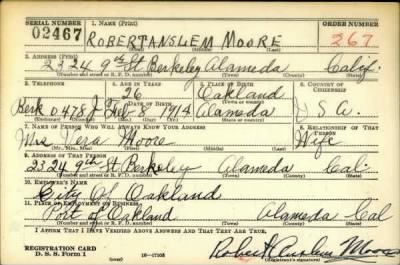 SERIAL NUMBER 1. NAME (Print) ORDER NUMBER
02467 ROBERT ANSLEM MOORE 267
(First) (Middle) (Last)
2. ADDRESS (Print)
2324 9th St Berkeley Alameda Calif.
(Number and street or R. F. D. number) (Town) (County) (State)
3. TELEPHONE 4. AGE IN YEARS 5. PLACE OF BIRTH 6. COUNTRY OF CITIZENSHIP
26 Oakland
DATE OF BIRTH (Town or county)
Berk 0478 J Feb 8 1914 Alameda U S A.
(Exchange) (Number) (Mo.) (Day) (Yr.) (State or country)
7. NAME OF PERSON WHO WILL ALWAYS KNOW YOUR ADDRESS 8. RELATIONSHIP OF THAT PERSON
Mrs Vera Moore Wife
(Mr., Mrs., Miss) (First) (Middle) (Last)
9. ADDRESS OF THAT PERSON
2324 9th St Berkeley Alameda Cal.
(Number and street or R. F. D. number) (Town) (County) (State)
10. EMPLOYER'S NAME
City Of Oakland
11. PLACE OF EMPLOYMENT OR BUSINESS
Port of Oakland Alameda Cal
(Number and street or R. F. D. number) (Town) (County) (State)
I AFFIRM THAT I HAVE VERIFIED ABOVE ANSWERS AND THAT THEY ARE TRUE.
Robert Anslem Moore
REGISTRATION CARD
D. S. S. Form 1 (over) 16—17105 (Registrant's signature)